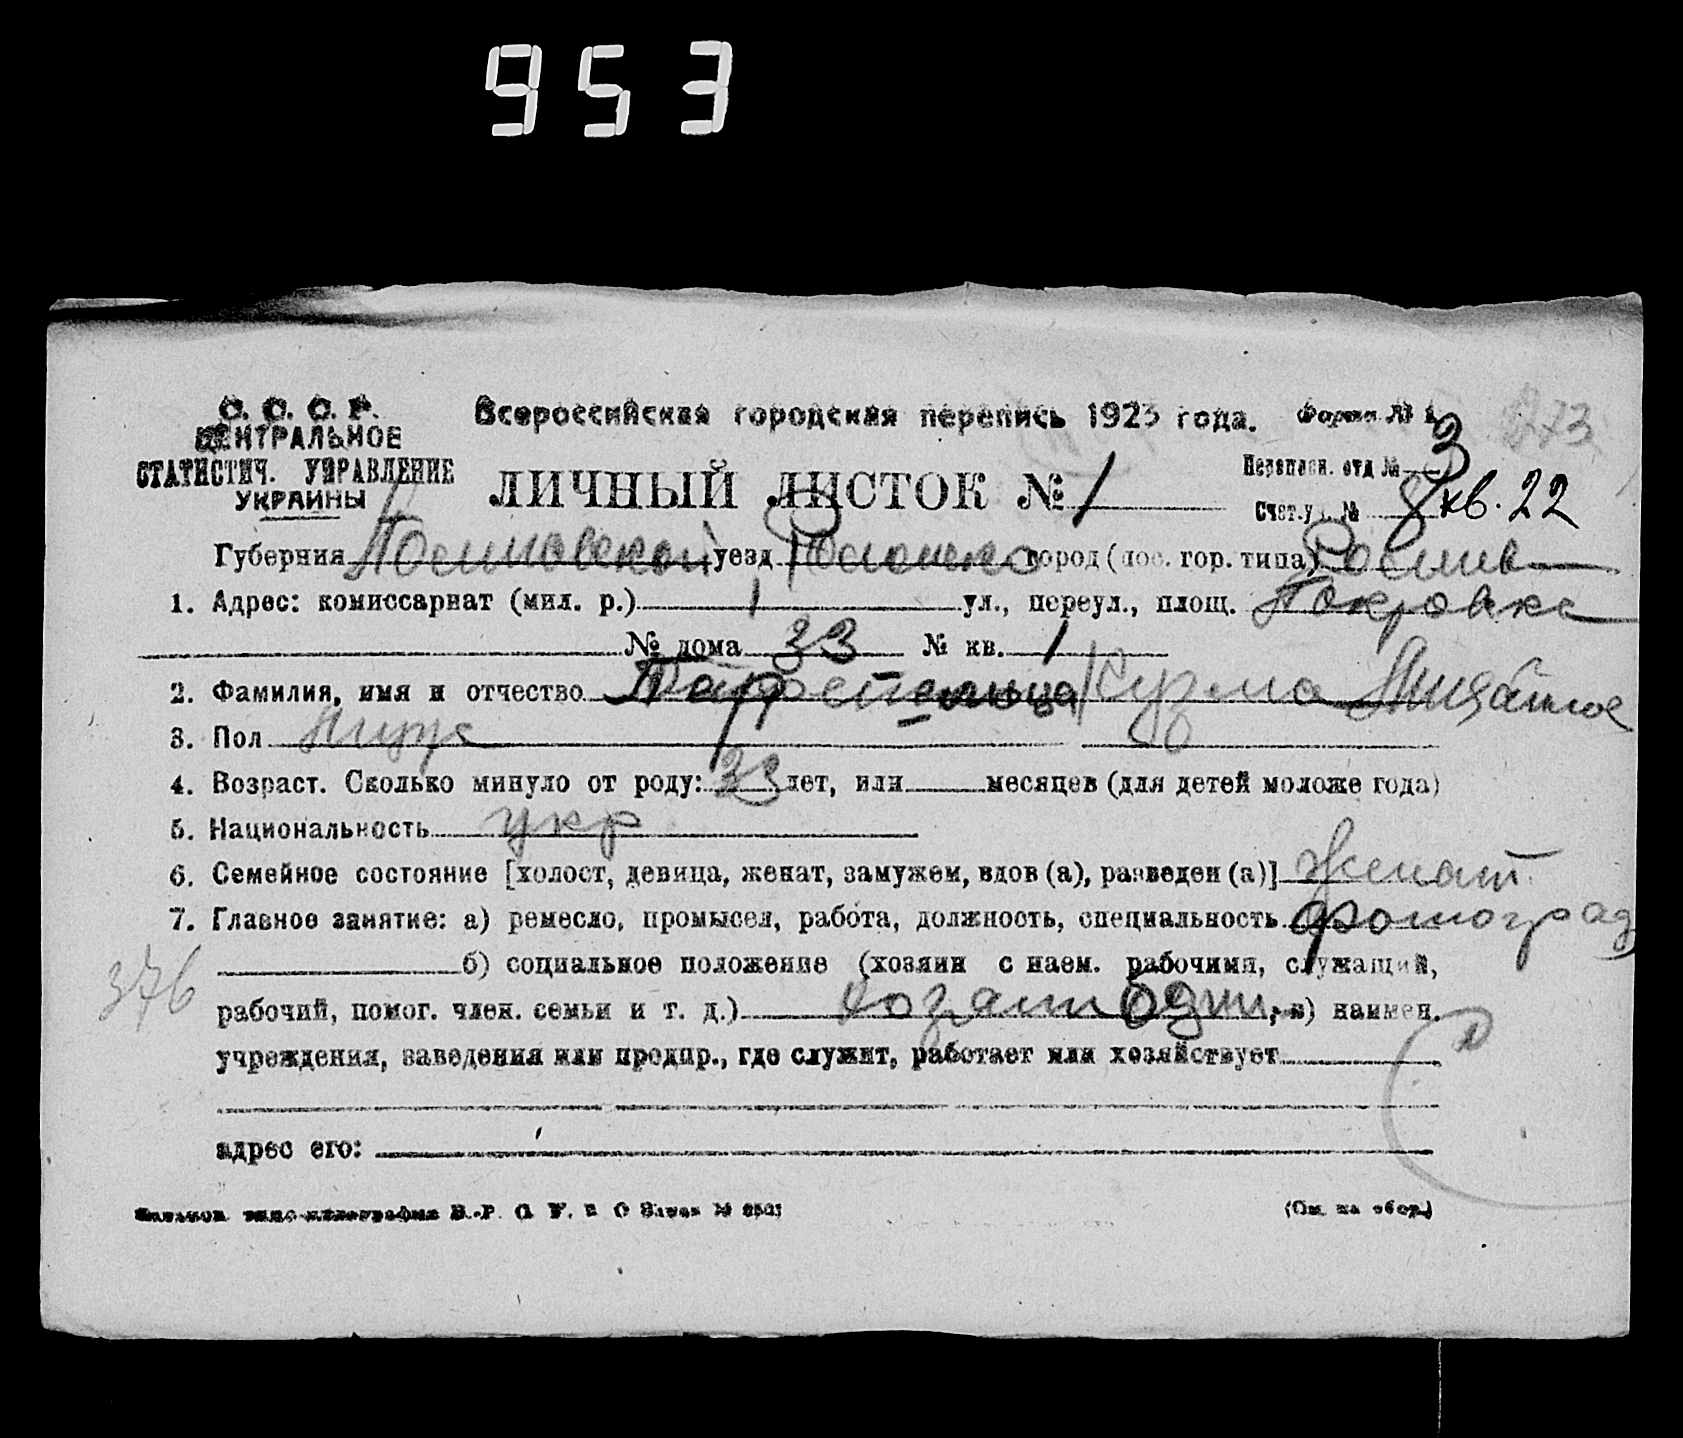 953
С. С. С. Р.
ЦЕНТРАЛЬНОЕ
СТАТИСТИЧ. УПРАВЛЕНИЕ
УКРАИНЫ
Всероссийская городская перепись 1923 года.
Форма № 1
273
ЛИЧНЫЙ ЛИСТОК № 1
Переписн. отд № 3
Счет. уч. № 8 кв. 22
Губерния уезд город (пос. гор. типа)
1. Адрес: комиссариат (мил. р.) 1 ул., переул., площ. Покровка
№ дома 33 № кв. 1
2. Фамилия, имя и отчество Кузма
3. Пол Муж
4. Возраст. Сколько минуло от роду: 33 лет, или месяцев (для детей моложе года)
5. Национальность укр
6. Семейное состояние [холост, девица, женат, замужем, вдов (а), разведен (а)] Женат
7. Главное занятие: а) ремесло, промысел, работа, должность, специальность фотограф
376
б) социальное положение (хозяин с наем. рабочими, служащий,
рабочий, помог. член. семьи и т. д.) один; в) наимен.
учреждения, заведения или предпр., где служит, работает или хозяйствует
адрес его:
(См. на обор.)